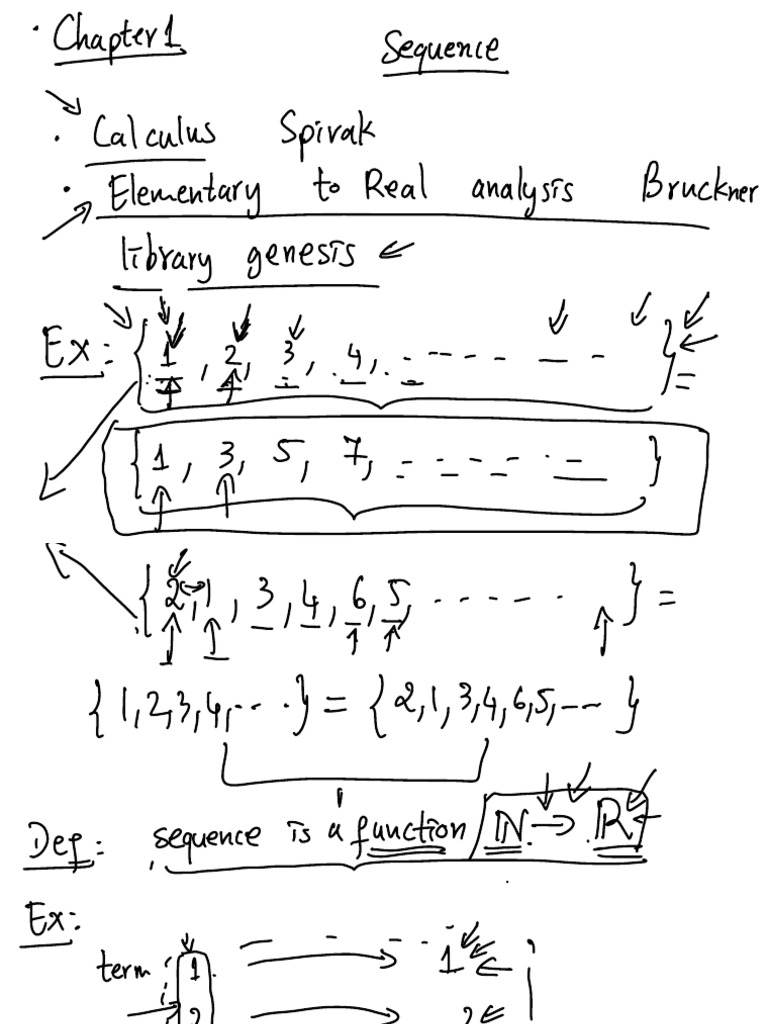 Chapter 1 Sequence
Calculus Spivak
Elementary to Real analysis Bruckner
library genesis
Ex: { 1, 2, 3, 4, ------ } =
{ 1, 3, 5, 7, ------ }
{ 2, 1, 3, 4, 6, 5, ...... } =
{ 1, 2, 3, 4, ... } = { 2, 1, 3, 4, 6, 5, --- }
Def: sequence is a function ℕ → ℝ
Ex:
term 1 → 1
2 → 2